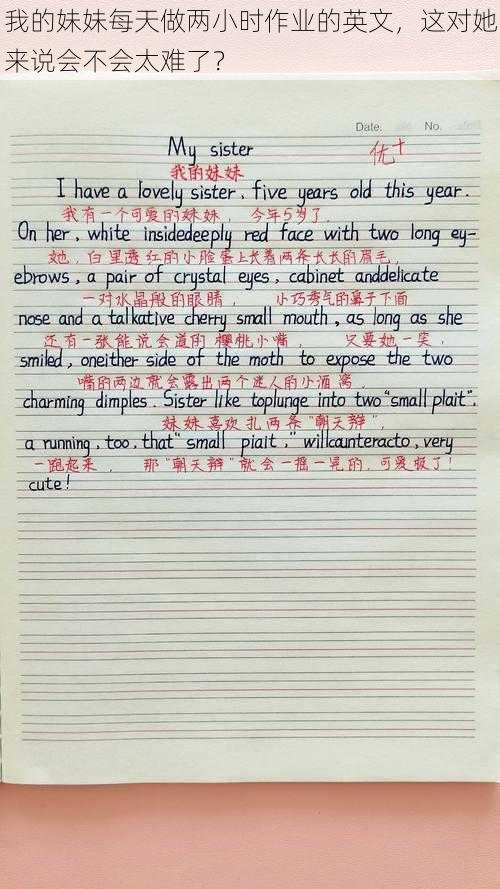 我的妹妹每天做两小时作业的英文，这对她
来说会不会太难了？
Date. No.
My sister 优+
我的妹妹
I have a lovely sister, five years old this year.
我有一个可爱的妹妹， 今年5岁了.
On her, white insidedeeply red face with two long ey-
她，白里透红的小脸蛋上长着两条长长的眉毛，
ebrows, a pair of crystal eyes, cabinet anddelicate
一对水晶般的眼睛， 小巧秀气的鼻子下面
nose and a talkative cherry small mouth, as long as she
还有一张能说会道的樱桃小嘴， 只要她一笑，
smiled, oneither side of the moth to expose the two
嘴的两边就会露出两个迷人的小酒窝，
charming dimples. Sister like toplunge into two "small plait".
妹妹喜欢扎两条"朝天辫"，
a running, too, that" small piait ," willcaunteracto, very
一跑起来， 那"朝天辫"就会一摇一晃的.可爱极了！
cute!